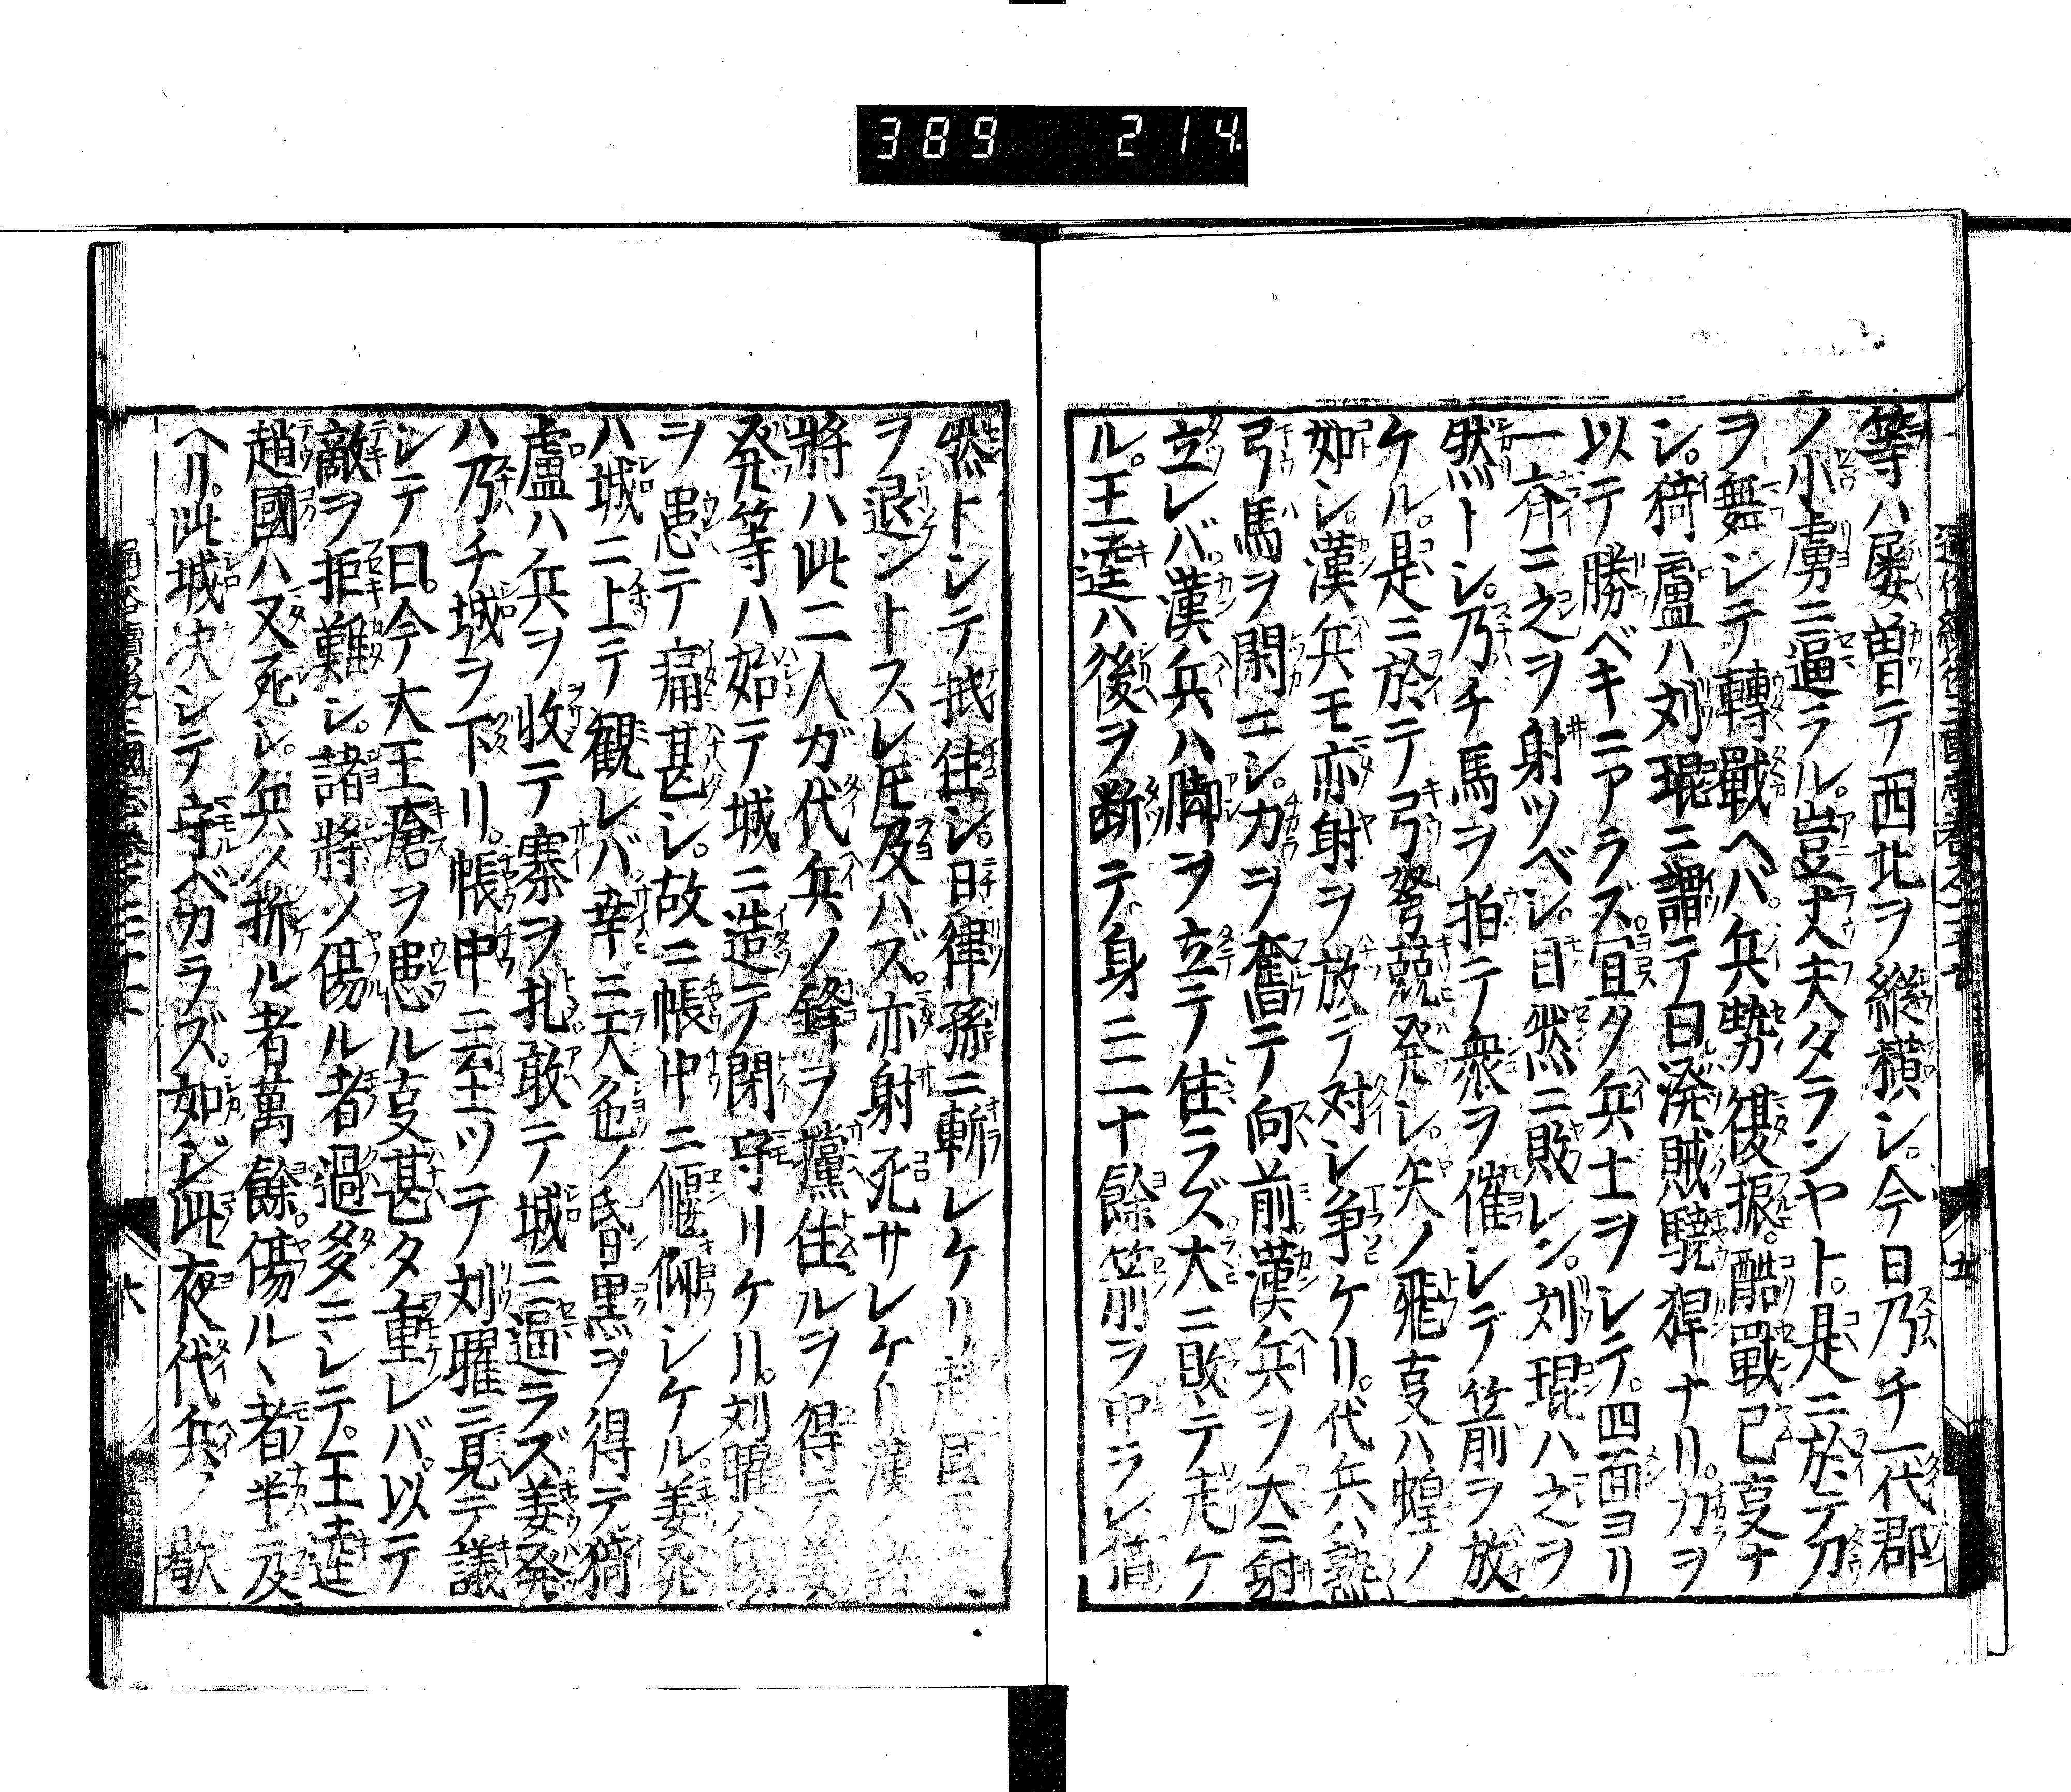 389 214.
等ハ屡曽テ西北ヲ縦横シ。今日乃チ一代郡
ノ小虜ニ逼ラル。豈丈夫タランヤト。是ニ於テ刀
ヲ舞シテ轉戰ヘバ。兵勢復振。酷戰已叓ナ
シ。猗盧ハ刘琨ニ謂テ曰溌賊驍猂ナリ。力ヲ
以テ勝ベキニアラズ。宜タ兵士ヲシテ。四面ヨリ
一齊ニ之ヲ射ツベシ。自然ニ敗レン。刘琨ハ之ヲ
然トシ。乃チ馬ヲ拍テ衆ヲ催シテ箭ヲ放
ケル。是ニ於テ弓弩競発シ。矢ノ飛叓ハ蝗ノ
如シ。漢兵モ亦射ヲ放テ対シ争ケリ。代兵ハ熟
弓馬ヲ閑エシ。力ヲ奮テ向前。漢兵ヲ大ニ射
立レバ。漢兵ハ脚ヲ立テ住ラズ大ニ敗テ走ケ
ル。王逵ハ後ヲ断テ。身ニ二十餘箭ヲ中ラレ猶
然トシテ抵住シ。日律孫ニ斬レケリ
ヲ退ントスレ𪜈及ハズ。亦射死サレケリ漢ノ諸
將ハ此二人ガ代兵ノ鋒ヲ攩住ルヲ得テ。姜
発等ハ始テ城ニ造テ閉守リケリ。刘曜ハ傷
ヲ患テ痛甚シ。故ニ帳中ニ偃仰シケル。姜発
ハ城ニ上テ観レバ幸ニ天色ノ昏黒ヲ得テ猗
盧ハ兵ヲ收テ寨ヲ扎敢テ城ニ逼ラズ。姜発
ハ乃チ城ヲ下リ。帳中ニ至ツテ刘曜ニ見テ議
シテ曰。今大王瘡ヲ患ル叓甚タ重レバ。以テ
敵ヲ拒難シ。諸將ノ傷ル者過多ニシテ。王逵
趙國ハ又死シ。兵ノ折ル者萬餘。傷ルヽ者半ニ及
ヘリ。此城决シテ守ベカラズ。如シ此夜代兵ノ歇